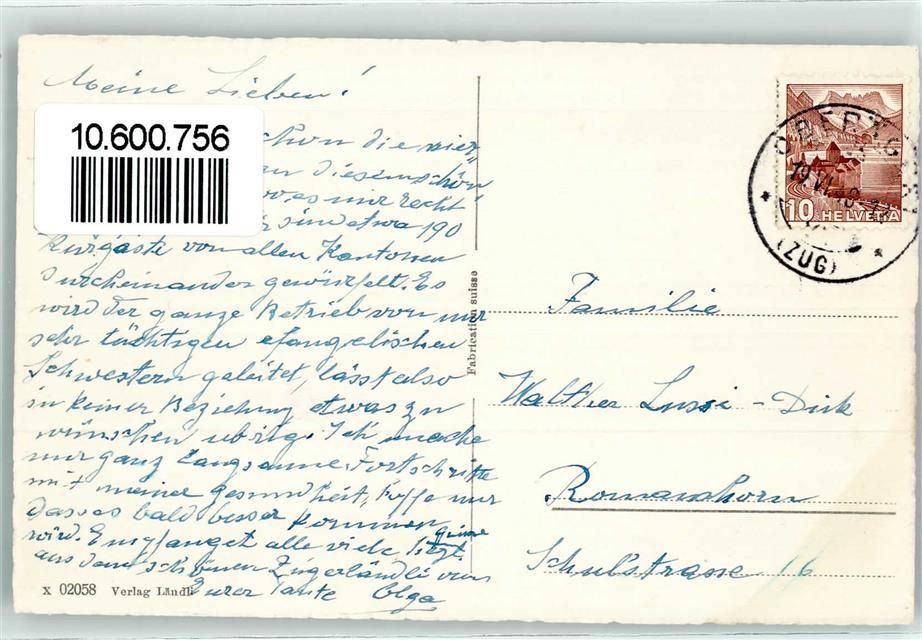 Meine Lieben!
10.600.756
schon die vier
an diesem schön
wo es mir recht
sind etwa 190
Kurgäste von allen Kantonen
durcheinander gewürfelt. Es
wird der ganze Betrieb von nur
sehr tüchtigen efangelischen
Schwestern geleitet, lässt also
in keiner Beziehung etwas zu
wünschen übrig. Ich mache
nur ganz langsame Fortschritte
mit meiner Gesundheit, hoffe nur
dass es bald besser kommen
wird. Empfanget alle viele
aus dem schönen Zugerländli von
Eurer Tante Olga
X 02058 Verlag Ländli
Fabrication suisse
10 HELVETIA
19.VI.
(ZUG)
Familie
Walther Lussi - Dick
Romanshorn
Schulstrasse 16